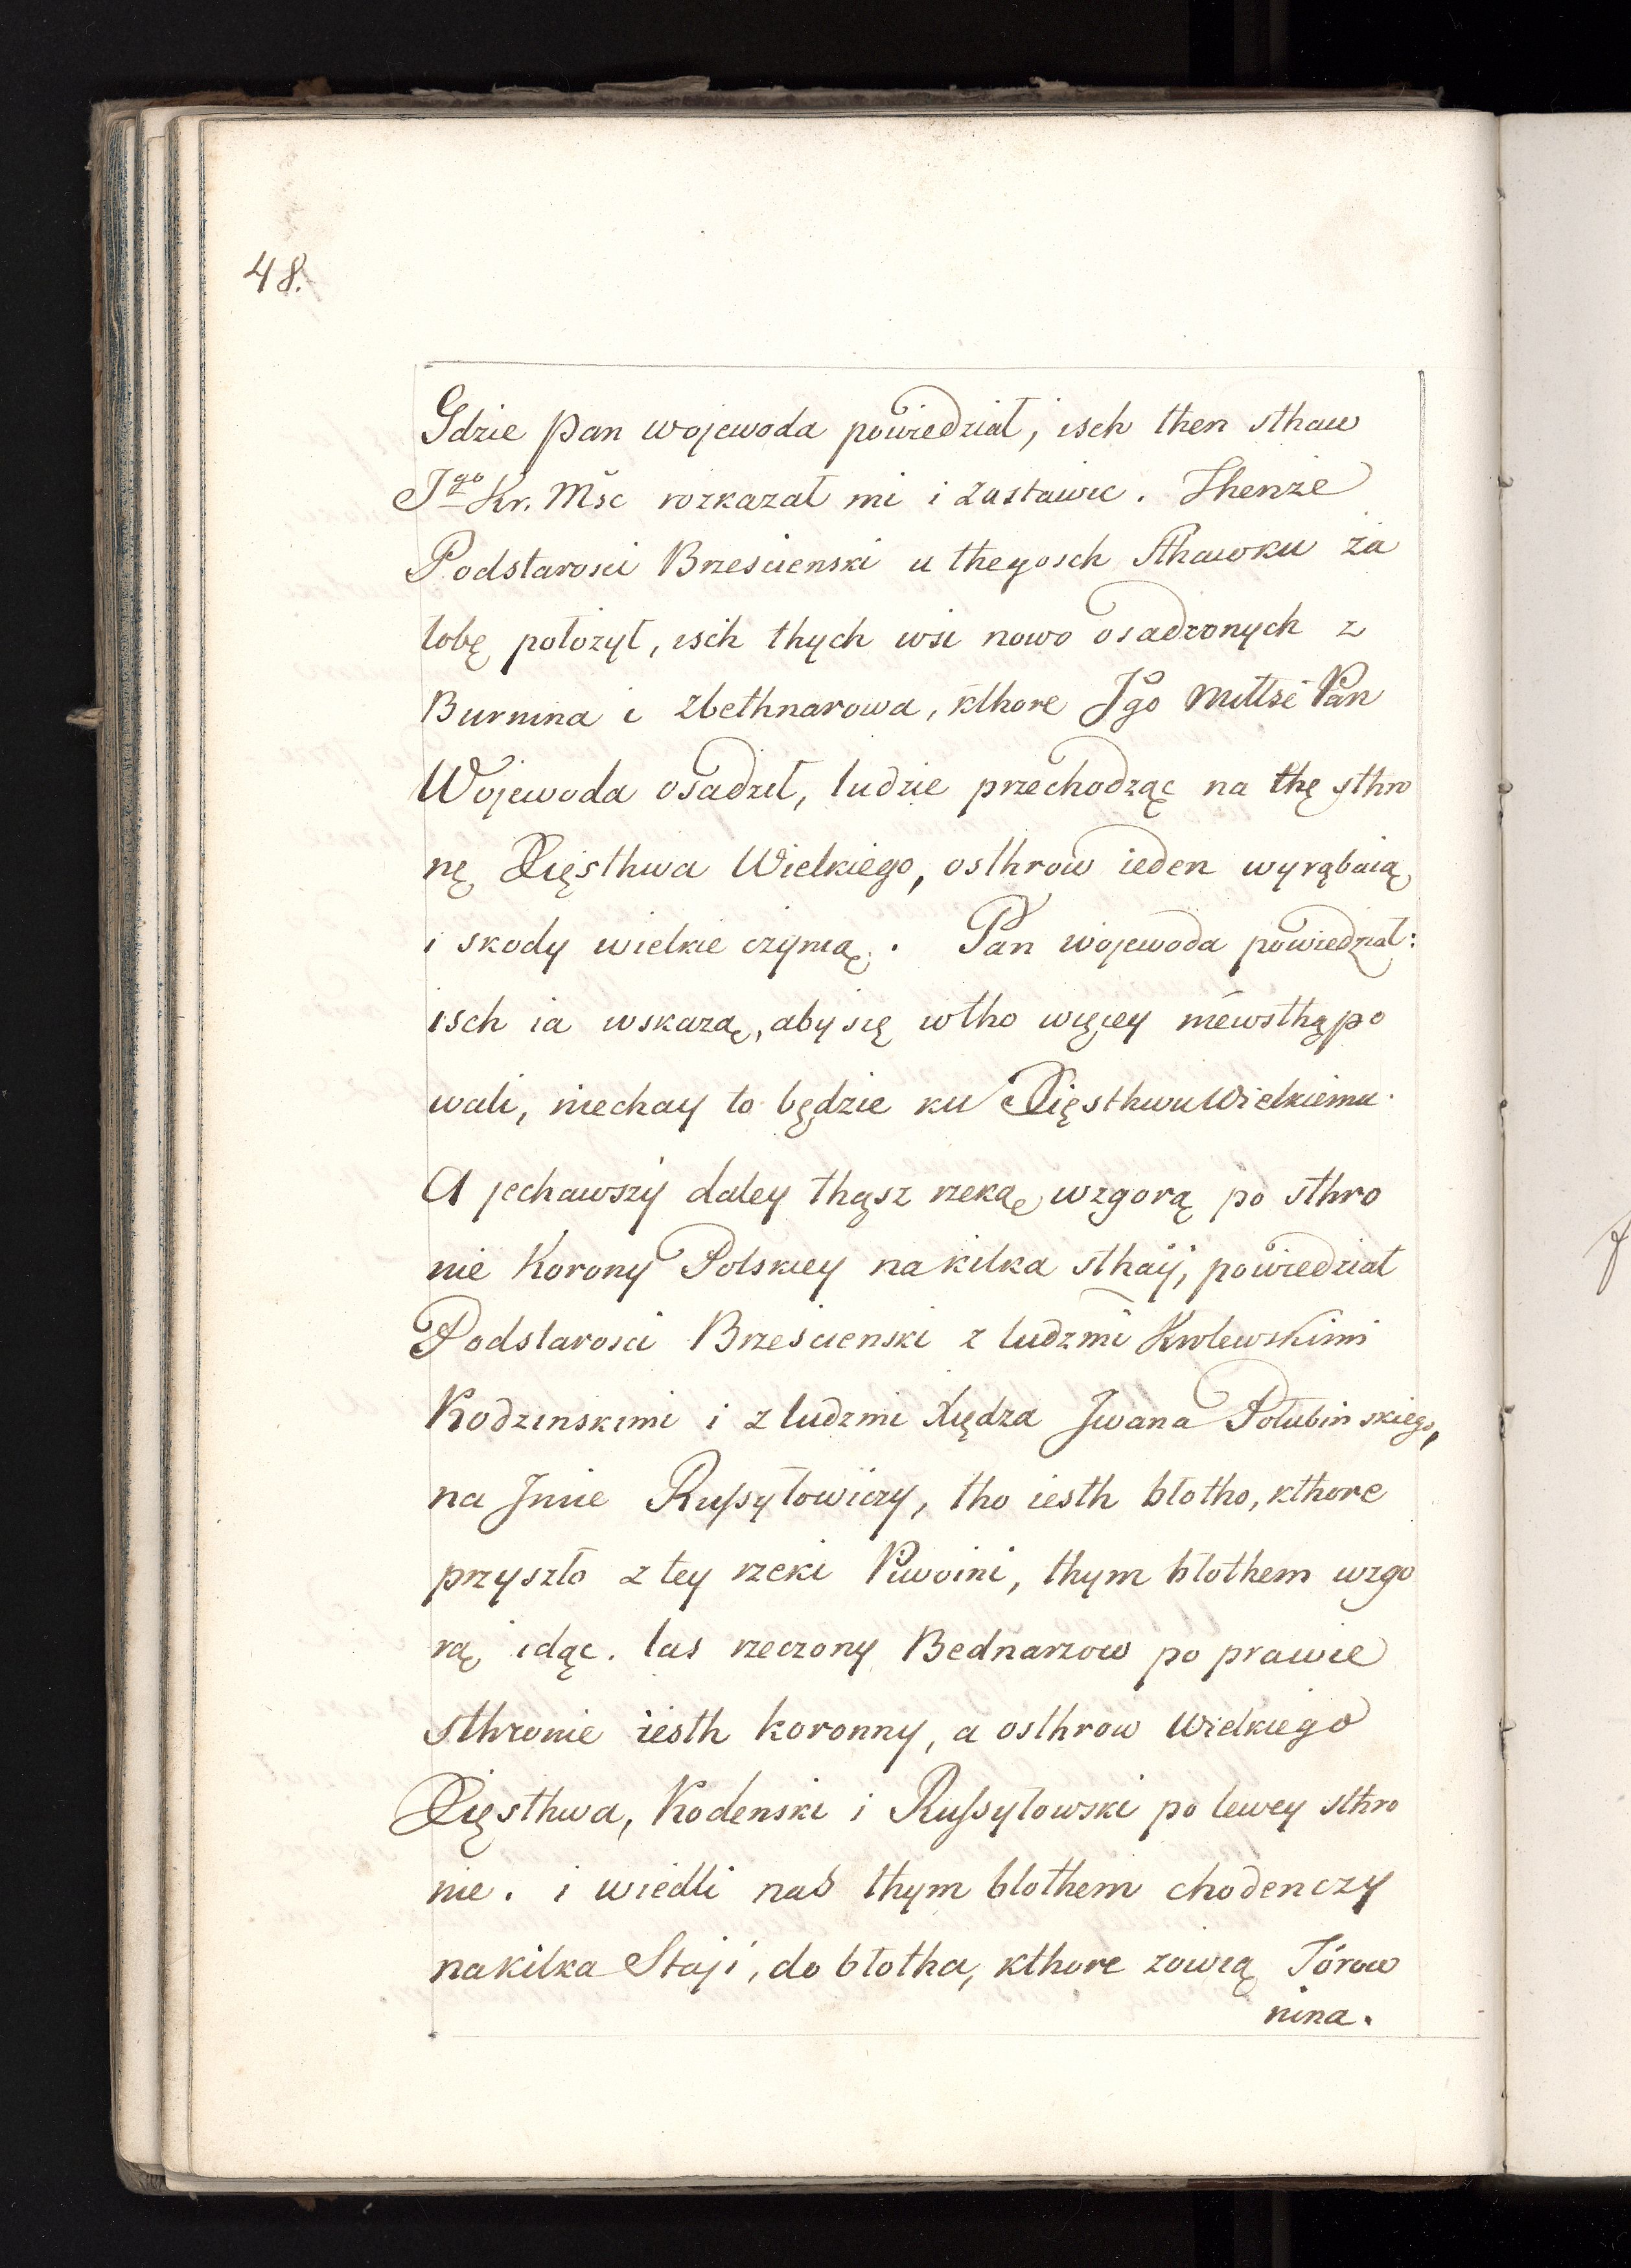 48.
Gdzie Pan wojewoda powiedział, isch then sthaw
Jgo Kr. Mśc rozkazał mi i zastawic. Thenże
Podstarosci Brzescienski u thegosch sthawku ża
łobę położył, isch thych wsi nowo osadzonych z
Burnina i Zbethnarowa, kthore Jgo Miłłsć Pan
Wojewoda osadził, ludzie przechodząc na thę sthro
nę Xięsthwa Wielkiego, osthrow ieden wyrąbaią
i skody wielkie czynią. Pan wojewoda powiedział:
isch ia wskazą, aby się wtho więcy niewsthąpo
wali, niechay to będzie ku Xięsthwu Wielkiemu.
A jechawszy daley thąsz rzeką wzgorą po sthro
nie Korony Polskiey na kilka sthaÿ, powiedział
Podstarosci Brzescienski z ludzmi Krolewskimi
Kodzinskimi i z ludzmi Xiędza Jwana Połubinskiego,
na Jmie Russyłowiczy, tho iesth błotho, kthore
przyszło z tey rzeki Piwoini, thym błothem wzgo
rą idąc. las rzeczony Bednarzow po prawie
sthronie iesth koronny, a osthrow Wielkiego
Xięsthwa, Kodenski i Russyłowski po lewey sthro
nie. i wiedli nas thym błothem chodenczy
na kilka Staji, do błotha, kthore zowią Jórow
nina.